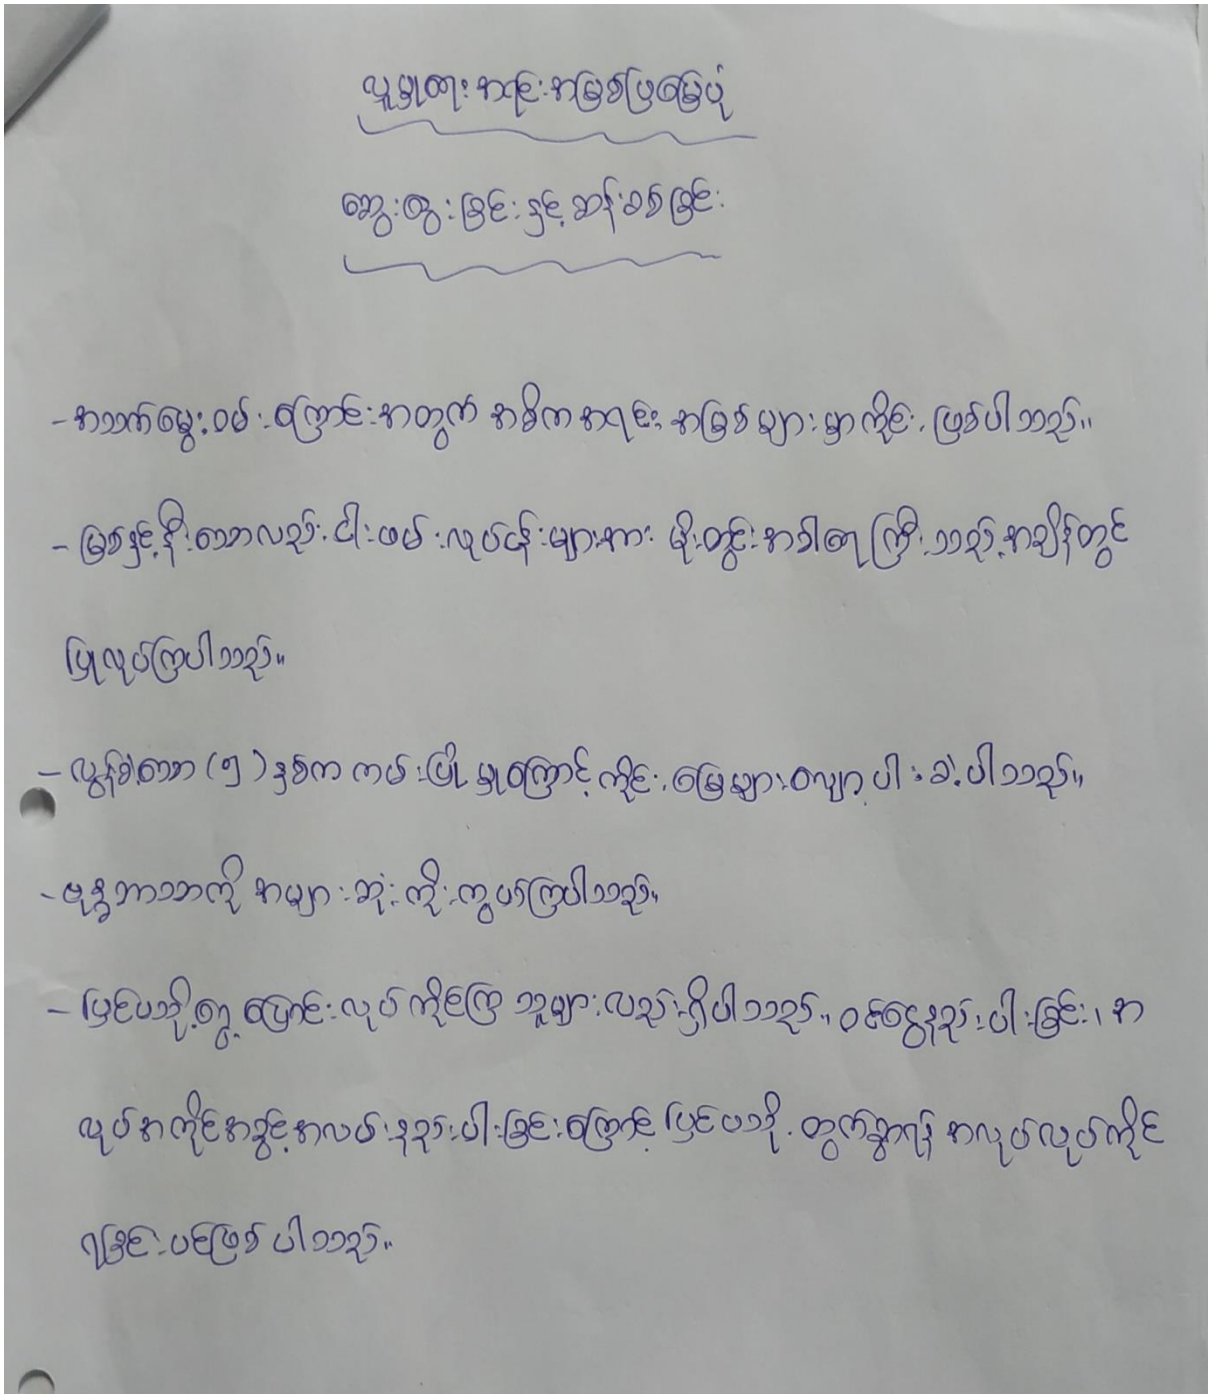 လူမှုရေးအရင်းအမြစ်ပြမြေပုံ
ဆွေးနွေးခြင်းနှင့်ဆန်းစစ်ခြင်း
- အသက်မွေးဝမ်းကြောင်းအတွက် အဓိကအရင်းအမြစ်များမှာကိုင်းဖြစ်ပါသည်။
- မြစ်နှင့်နီးသောလည်းငါးဖမ်းလုပ်ငန်းများအား မိုးတွင်းအခါရေကြီးသည့်အချိန်တွင်
ပြုလုပ်ကြပါသည်။
- လွန်ခဲ့သော (၅) နှစ်က ကမ်းပြိုမှုကြောင့် ကိုင်းမြေများလျော့ပါးခဲ့ပါသည်။
- ဗုဒ္ဓဘာသာကို အများဆုံးကိုးကွယ်ကြပါသည်။
- ပြင်ပသို့ရွှေ့ပြောင်းလုပ်ကိုင်ကြသူများလည်းရှိပါသည်။ ဝင်ငွေနည်းပါးခြင်း၊ အ
လုပ်အကိုင်အခွင့်အလမ်းနည်းပါးခြင်းကြောင့် ပြင်ပသို့ထွက်ခွာရန် အလုပ်လုပ်ကိုင်
ရခြင်းပင်ဖြစ်ပါသည်။